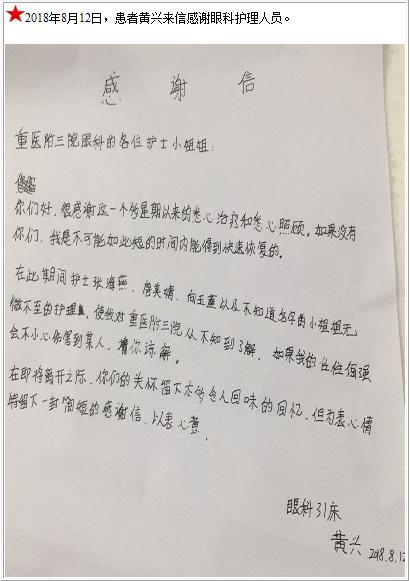 ★2018年8月12日，患者黄兴来信感谢眼科护理人员。
感 谢 信
重医附三院眼科的各位护士小姐姐：
你们好，很感谢这一个多星期以来的悉心治疗和悉心照顾。如果没有
你们，我是不可能如此短的时间内能得到快速恢复的。
在此期间护士张海燕、廖美婧、向玉蓬以及不知道名字的小姐姐无
微不至的护理，使我对重医附三院从不知到了解，如果我的性格倔强
会不小心伤害到某人，请你谅解。
在即将离开之际，你们的关怀留下太多令人回味的回忆，但为表心情
特留下一封简短的感谢信，以表心意。
眼科31床
黄兴 2018.8.12